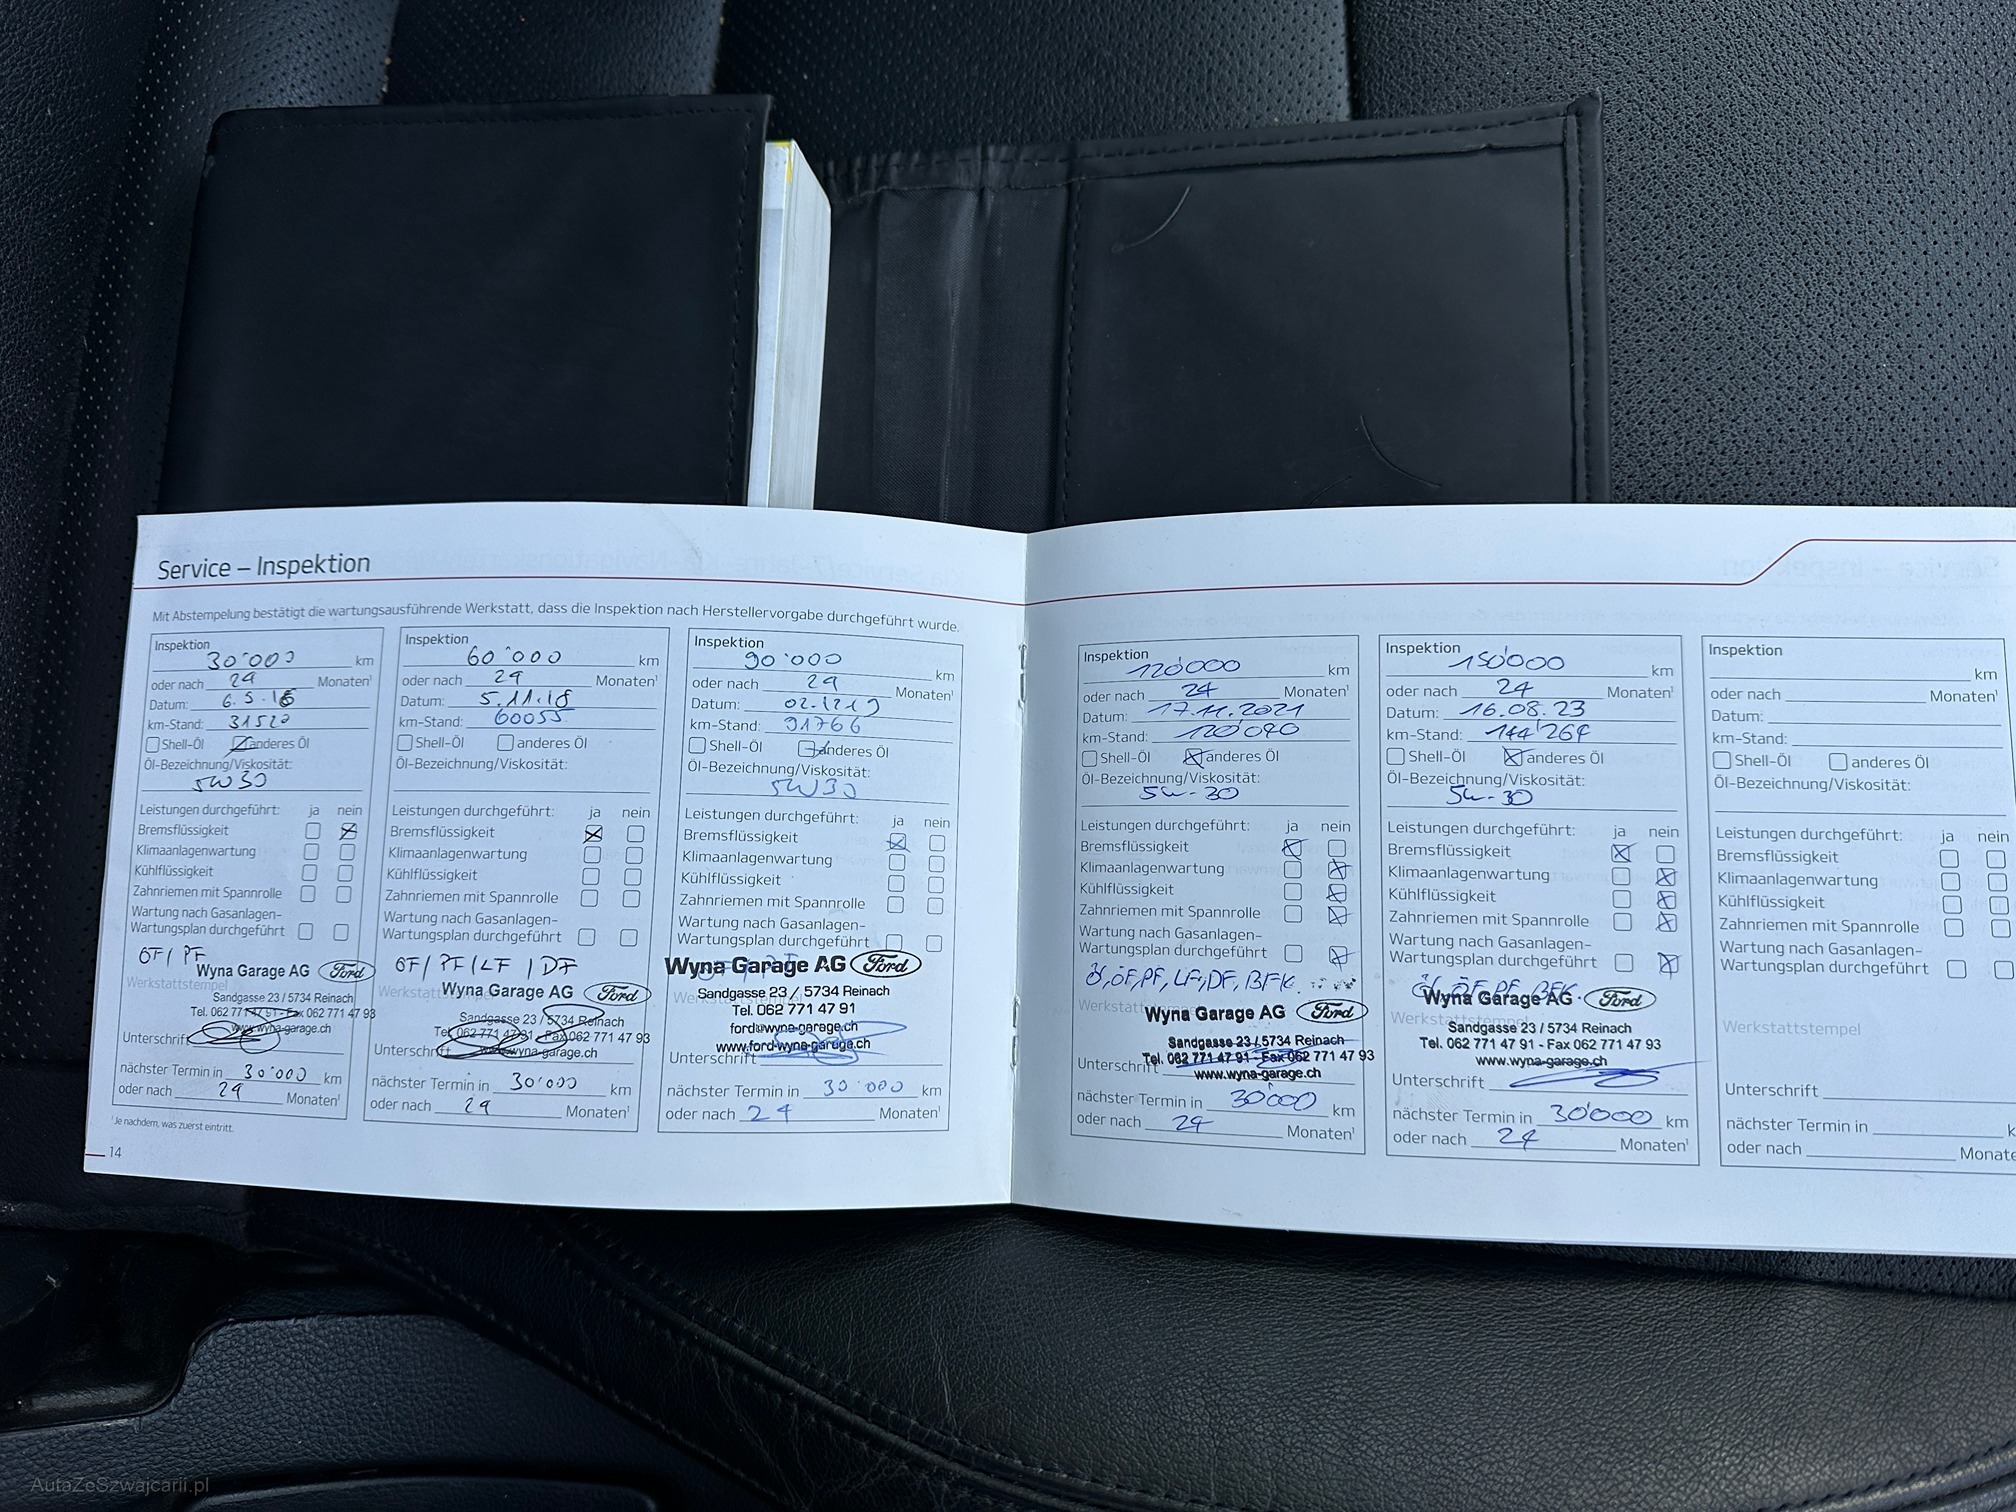 Service – Inspektion
Mit Abstempelung bestätigt die wartungsausführende Werkstatt, dass die Inspektion nach Herstellervorgabe durchgeführt wurde.
Inspektion
30'000 km
oder nach 24 Monaten¹
Datum: 6.5.16
km-Stand: 31520
Shell-Öl anderes Öl
Öl-Bezeichnung/Viskosität:
5W30
Leistungen durchgeführt: ja nein
Bremsflüssigkeit
Klimaanlagenwartung
Kühlflüssigkeit
Zahnriemen mit Spannrolle
Wartung nach Gasanlagen-
Wartungsplan durchgeführt
ÖF / PF
Wyna Garage AG Ford
Werkstattstempel
Sandgasse 23 / 5734 Reinach
Tel. 062 771 47 91 - Fax 062 771 47 93
www.wyna-garage.ch
Unterschrift
nächster Termin in 30'000 km
oder nach 24 Monaten¹
¹Je nachdem, was zuerst eintritt.
14
Inspektion
60'000 km
oder nach 24 Monaten¹
Datum: 5.11.18
km-Stand: 60055
Shell-Öl anderes Öl
Öl-Bezeichnung/Viskosität:
Leistungen durchgeführt: ja nein
Bremsflüssigkeit
Klimaanlagenwartung
Kühlflüssigkeit
Zahnriemen mit Spannrolle
Wartung nach Gasanlagen-
Wartungsplan durchgeführt
ÖF / PF / LF / DF
Wyna Garage AG Ford
Sandgasse 23 / 5734 Reinach
Tel. 062 771 47 91 - Fax 062 771 47 93
www.wyna-garage.ch
Unterschrift
nächster Termin in 30'000 km
oder nach 24 Monaten¹
Inspektion
90'000 km
oder nach 24 Monaten¹
Datum: 02.12.19
km-Stand: 91766
Shell-Öl anderes Öl
Öl-Bezeichnung/Viskosität:
5W30
Leistungen durchgeführt: ja nein
Bremsflüssigkeit
Klimaanlagenwartung
Kühlflüssigkeit
Zahnriemen mit Spannrolle
Wartung nach Gasanlagen-
Wartungsplan durchgeführt
Wyna Garage AG Ford
Sandgasse 23 / 5734 Reinach
Tel. 062 771 47 91
ford@wyna-garage.ch
www.ford-wyna-garage.ch
Unterschrift
nächster Termin in 30'000 km
oder nach 24 Monaten¹
Inspektion
120'000 km
oder nach 24 Monaten¹
Datum: 17.11.2021
km-Stand: 120'040
Shell-Öl anderes Öl
Öl-Bezeichnung/Viskosität:
5w-30
Leistungen durchgeführt: ja nein
Bremsflüssigkeit
Klimaanlagenwartung
Kühlflüssigkeit
Zahnriemen mit Spannrolle
Wartung nach Gasanlagen-
Wartungsplan durchgeführt
Öl, ÖF, PF, LF, DF, BFK.
Werkstattstempel
Wyna Garage AG Ford
Sandgasse 23 / 5734 Reinach
Tel. 062 771 47 91 - Fax 062 771 47 93
www.wyna-garage.ch
Unterschrift
nächster Termin in 30'000 km
oder nach 24 Monaten¹
Inspektion
150'000 km
oder nach 24 Monaten¹
Datum: 16.08.23
km-Stand: 144'264
Shell-Öl anderes Öl
Öl-Bezeichnung/Viskosität:
5w-30
Leistungen durchgeführt: ja nein
Bremsflüssigkeit
Klimaanlagenwartung
Kühlflüssigkeit
Zahnriemen mit Spannrolle
Wartung nach Gasanlagen-
Wartungsplan durchgeführt
Öl, ÖF, PF, BFK.
Wyna Garage AG Ford
Werkstattstempel
Sandgasse 23 / 5734 Reinach
Tel. 062 771 47 91 - Fax 062 771 47 93
www.wyna-garage.ch
Unterschrift
nächster Termin in 30'000 km
oder nach 24 Monaten¹
Inspektion
km
oder nach Monaten¹
Datum:
km-Stand:
Shell-Öl anderes Öl
Öl-Bezeichnung/Viskosität:
Leistungen durchgeführt: ja nein
Bremsflüssigkeit
Klimaanlagenwartung
Kühlflüssigkeit
Zahnriemen mit Spannrolle
Wartung nach Gasanlagen-
Wartungsplan durchgeführt
Werkstattstempel
Unterschrift
nächster Termin in
oder nach
AutaZeSzwajcarii.pl